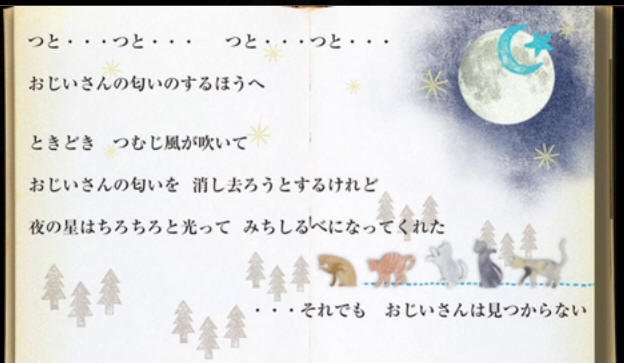 つと・・・つと・・・　つと・・・つと・・・
おじいさんの匂いのするほうへ
ときどき　つむじ風が吹いて
おじいさんの匂いを　消し去ろうとするけれど
夜の星はちろちろと光って　みちしるべになってくれた
・・・それでも　おじいさんは見つからない